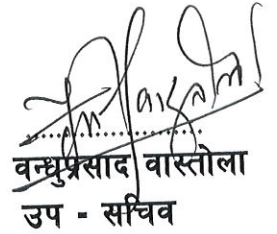 वन्धुप्रसाद वास्तोला
उप - सचिव